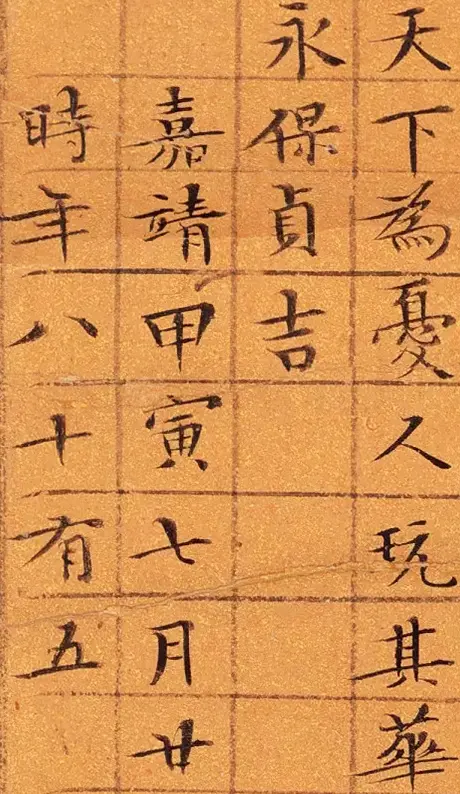 天下為憂人玩其華
永保貞吉
嘉靖甲寅七月廿
時年八十有五